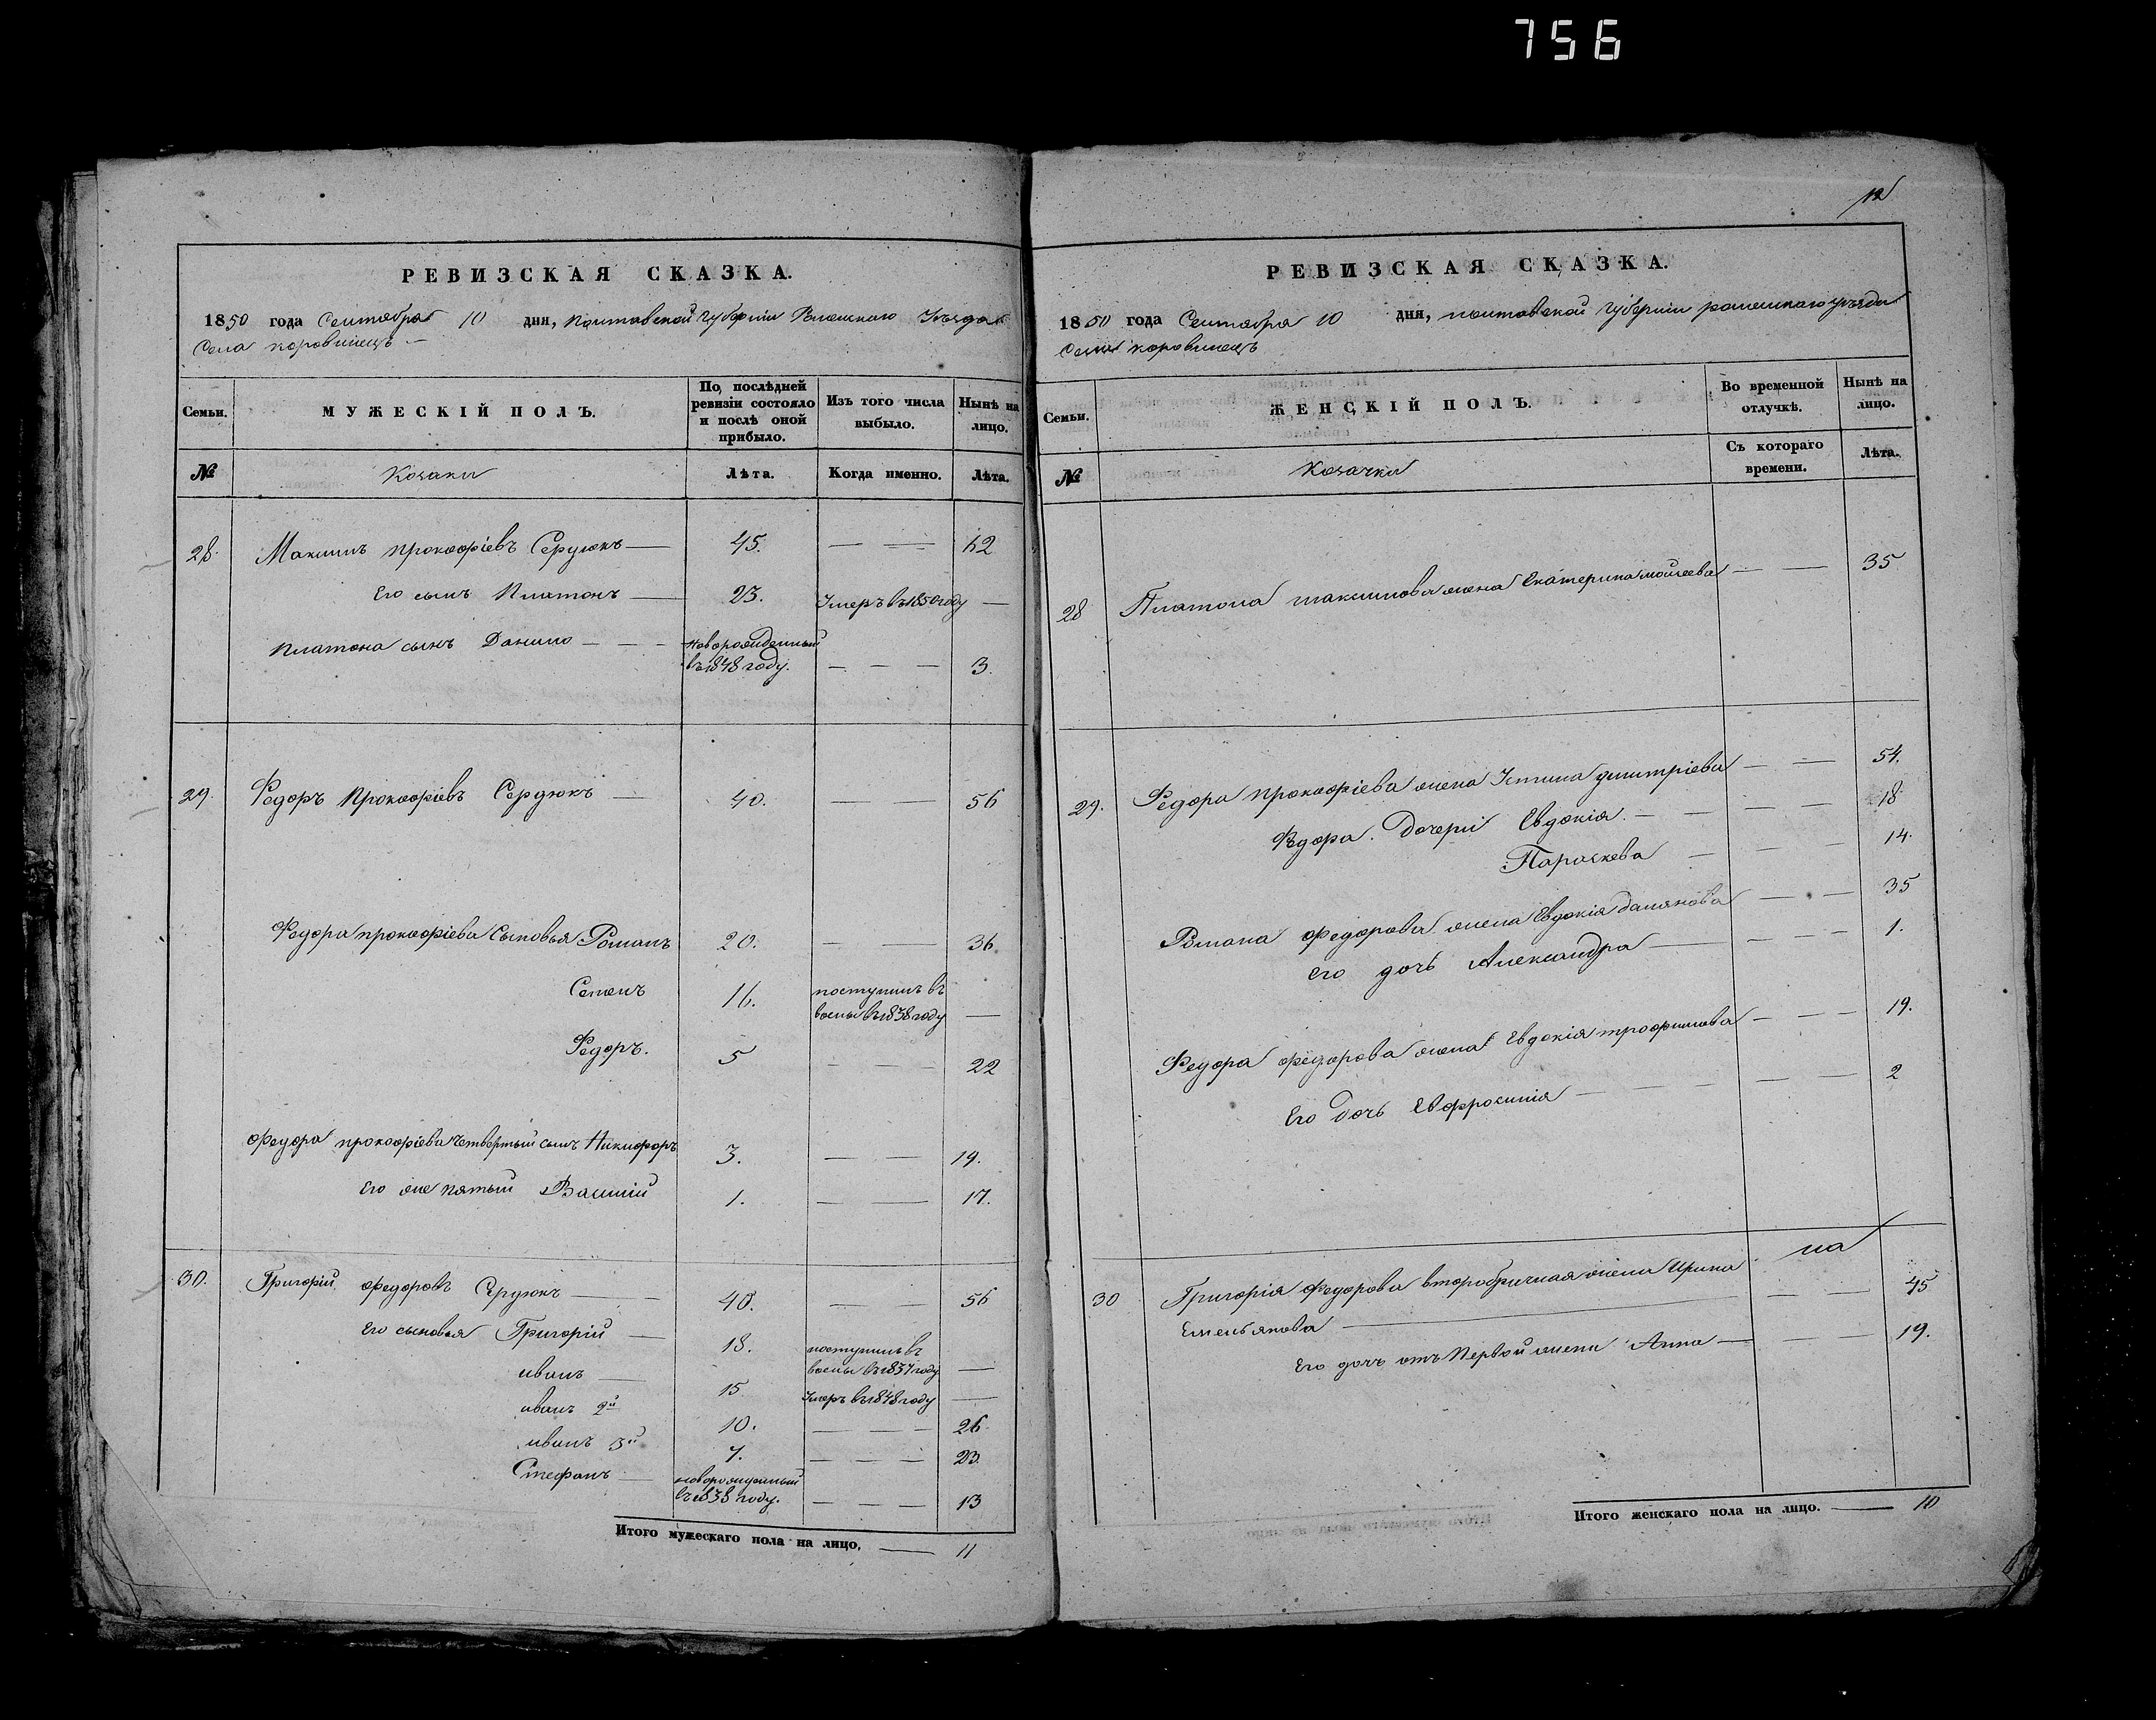 756
РЕВИЗСКАЯ СКАЗКА.
1850 года Сентября 10 дня, Полтавской Губерніи Роменского Уѣзда
Села коровинецъ
Семьи. МУЖЕСКІЙ ПОЛЪ. По, послѣдней ревизіи состояло и послѣ оной прибыло. Изъ того числа выбыло. Нынѣ на лицо.
№ Козаки Лѣта. Когда именно. Лѣта.
28. Максимъ прокофіевъ Сердюкъ — 45. — — 62
Его сынъ Платонъ — 23. Умеръ въ 1850 году —
Платона сынъ Данило — — — новорожденный въ 1848 году. — — — 3.
29. Федоръ Прокофіевъ Сердюкъ — 40. — — 56
Федора прокофіева Сыновья Романъ 20. — — 36
Семенъ 16. поступилъ въ военные въ 1838 году —
Федоръ. 5 — — — 22
Федора прокофіева четвертый сынъ Никифоръ 3. — — 19.
Его же пятый Василій 1. — — 17.
30. Григорій федоровъ Сердюкъ — — 40. — — 56
Его сыновья Григорій — 18. поступилъ въ военные въ 1837 году —
иванъ — 15 Умеръ въ 1848 году —
иванъ 2й 10. — — — 26
иванъ 3й 7. — — — 23.
Стефанъ — новорожденный въ 1838 году. — — — 13
Итого мужескаго пола на лицо. — 11
12
РЕВИЗСКАЯ СКАЗКА.
1850 года Сентября 10 дня, полтавской Губерніи роменского уѣзда
Села коровинецъ
Семьи. ЖЕНСКІЙ ПОЛЪ. Во временной отлучкѣ. Нынѣ на лицо.
№ Козачки Съ котораго времени. Лѣта.
28 Платона максимова жена Екатерина моисеева — — 35
29. Федора прокофіева жена Устина дмитріева — — 54.
Федора. Дочери Евдокія. — — — 18
Параскева — — — 14.
Романа федорова жена Евдокія даманова — — 35
его дочь Александра — — — — 1.
Федора федорова жена Евдокія трофимова — — — 19.
Его дочь Евфросинія — — — 2
30 Григорія федорова второбрачная жена Ирина
Емельянова — — — 45
Его дочь отъ Первой жены Анна — — — 19.
Итого женскаго пола на лицо. — 10